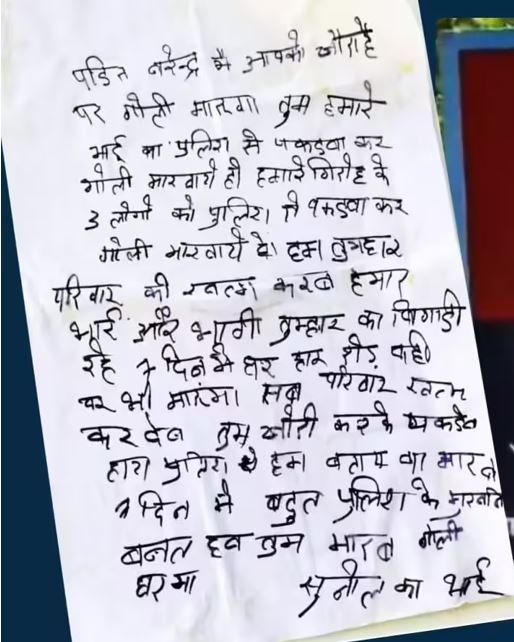 पंडित नरेन्द्र मै आपको चौराहे
पर गोली मारूगा तुम हमारे
भाई का पुलिश से पकडवा कर
गोली मारवाये हो हमारे गिरोह के
3 लोगो को पुलिश से पकडवा कर
गोली मारवाये हो हम तुम्हार
परिवार को खत्म करब हमार
भाई और भाभी तुम्हार का बिगाडी
रहे 7 दिन मे घर छोड़ नही
घर भी मारूंगा सब परिवार खत्म
कर देब तुम चोरी कर के पकडे
पुलिश से हम बताय का मार
7 दिन मे बहुत पुलिश के मुखबिर
बनत हव तुम मारब गोली
घर मा सुनील का भाई